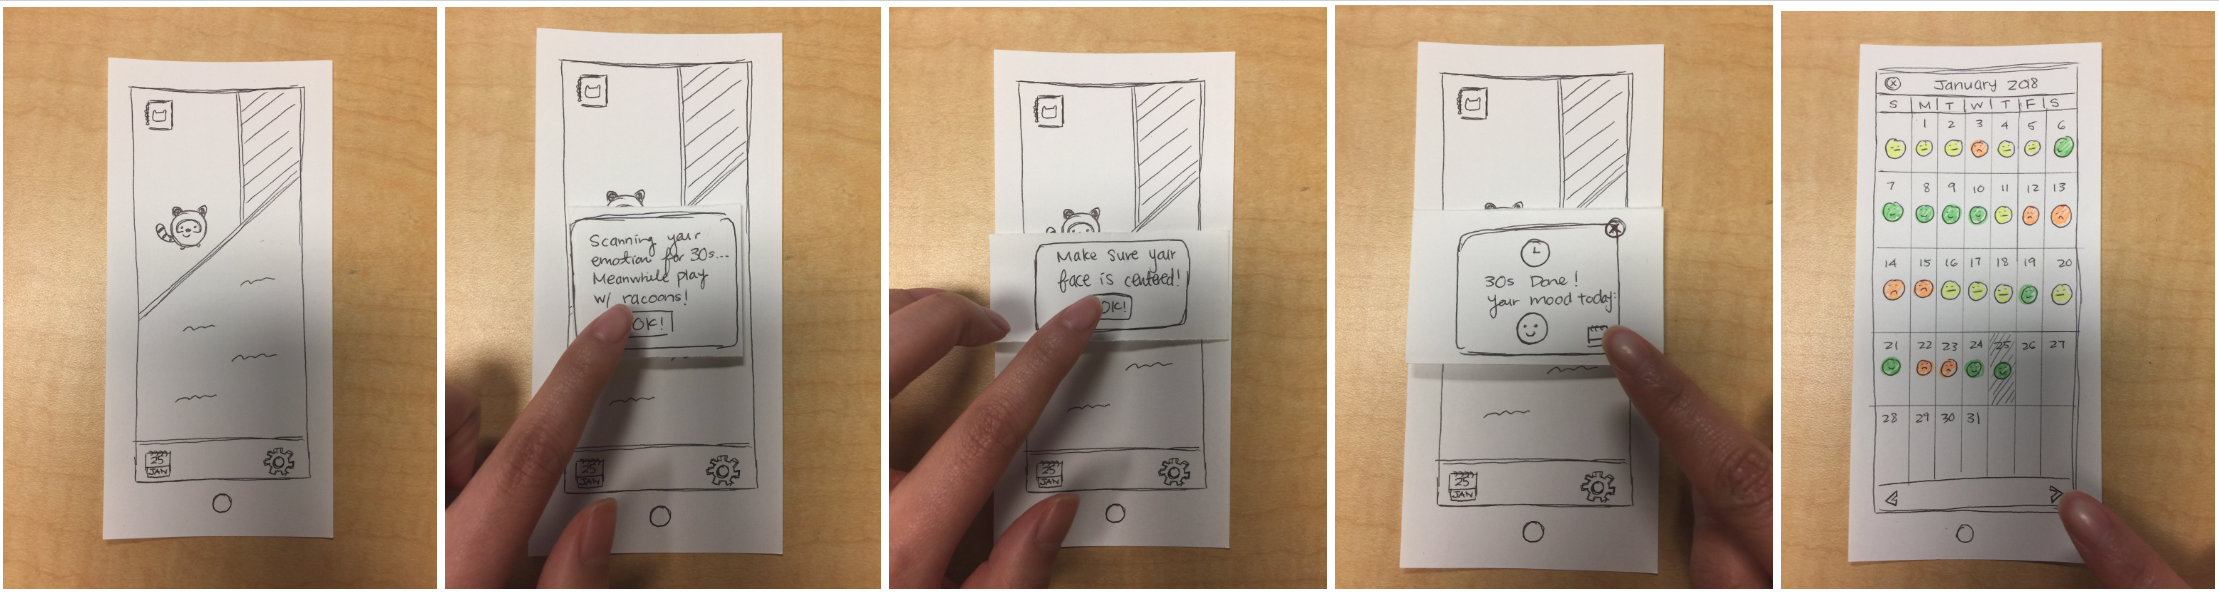 25
JAN
Scanning your
emotion for 30s...
Meanwhile play
w/ racoons!
OK!
25
JAN
Make Sure your
face is centered!
OK!
25
JAN
30s Done!
Your mood today:
25
JAN
January 2018
S M T W T F S
1 2 3 4 5 6
7 8 9 10 11 12 13
14 15 16 17 18 19 20
21 22 23 24 25 26 27
28 29 30 31